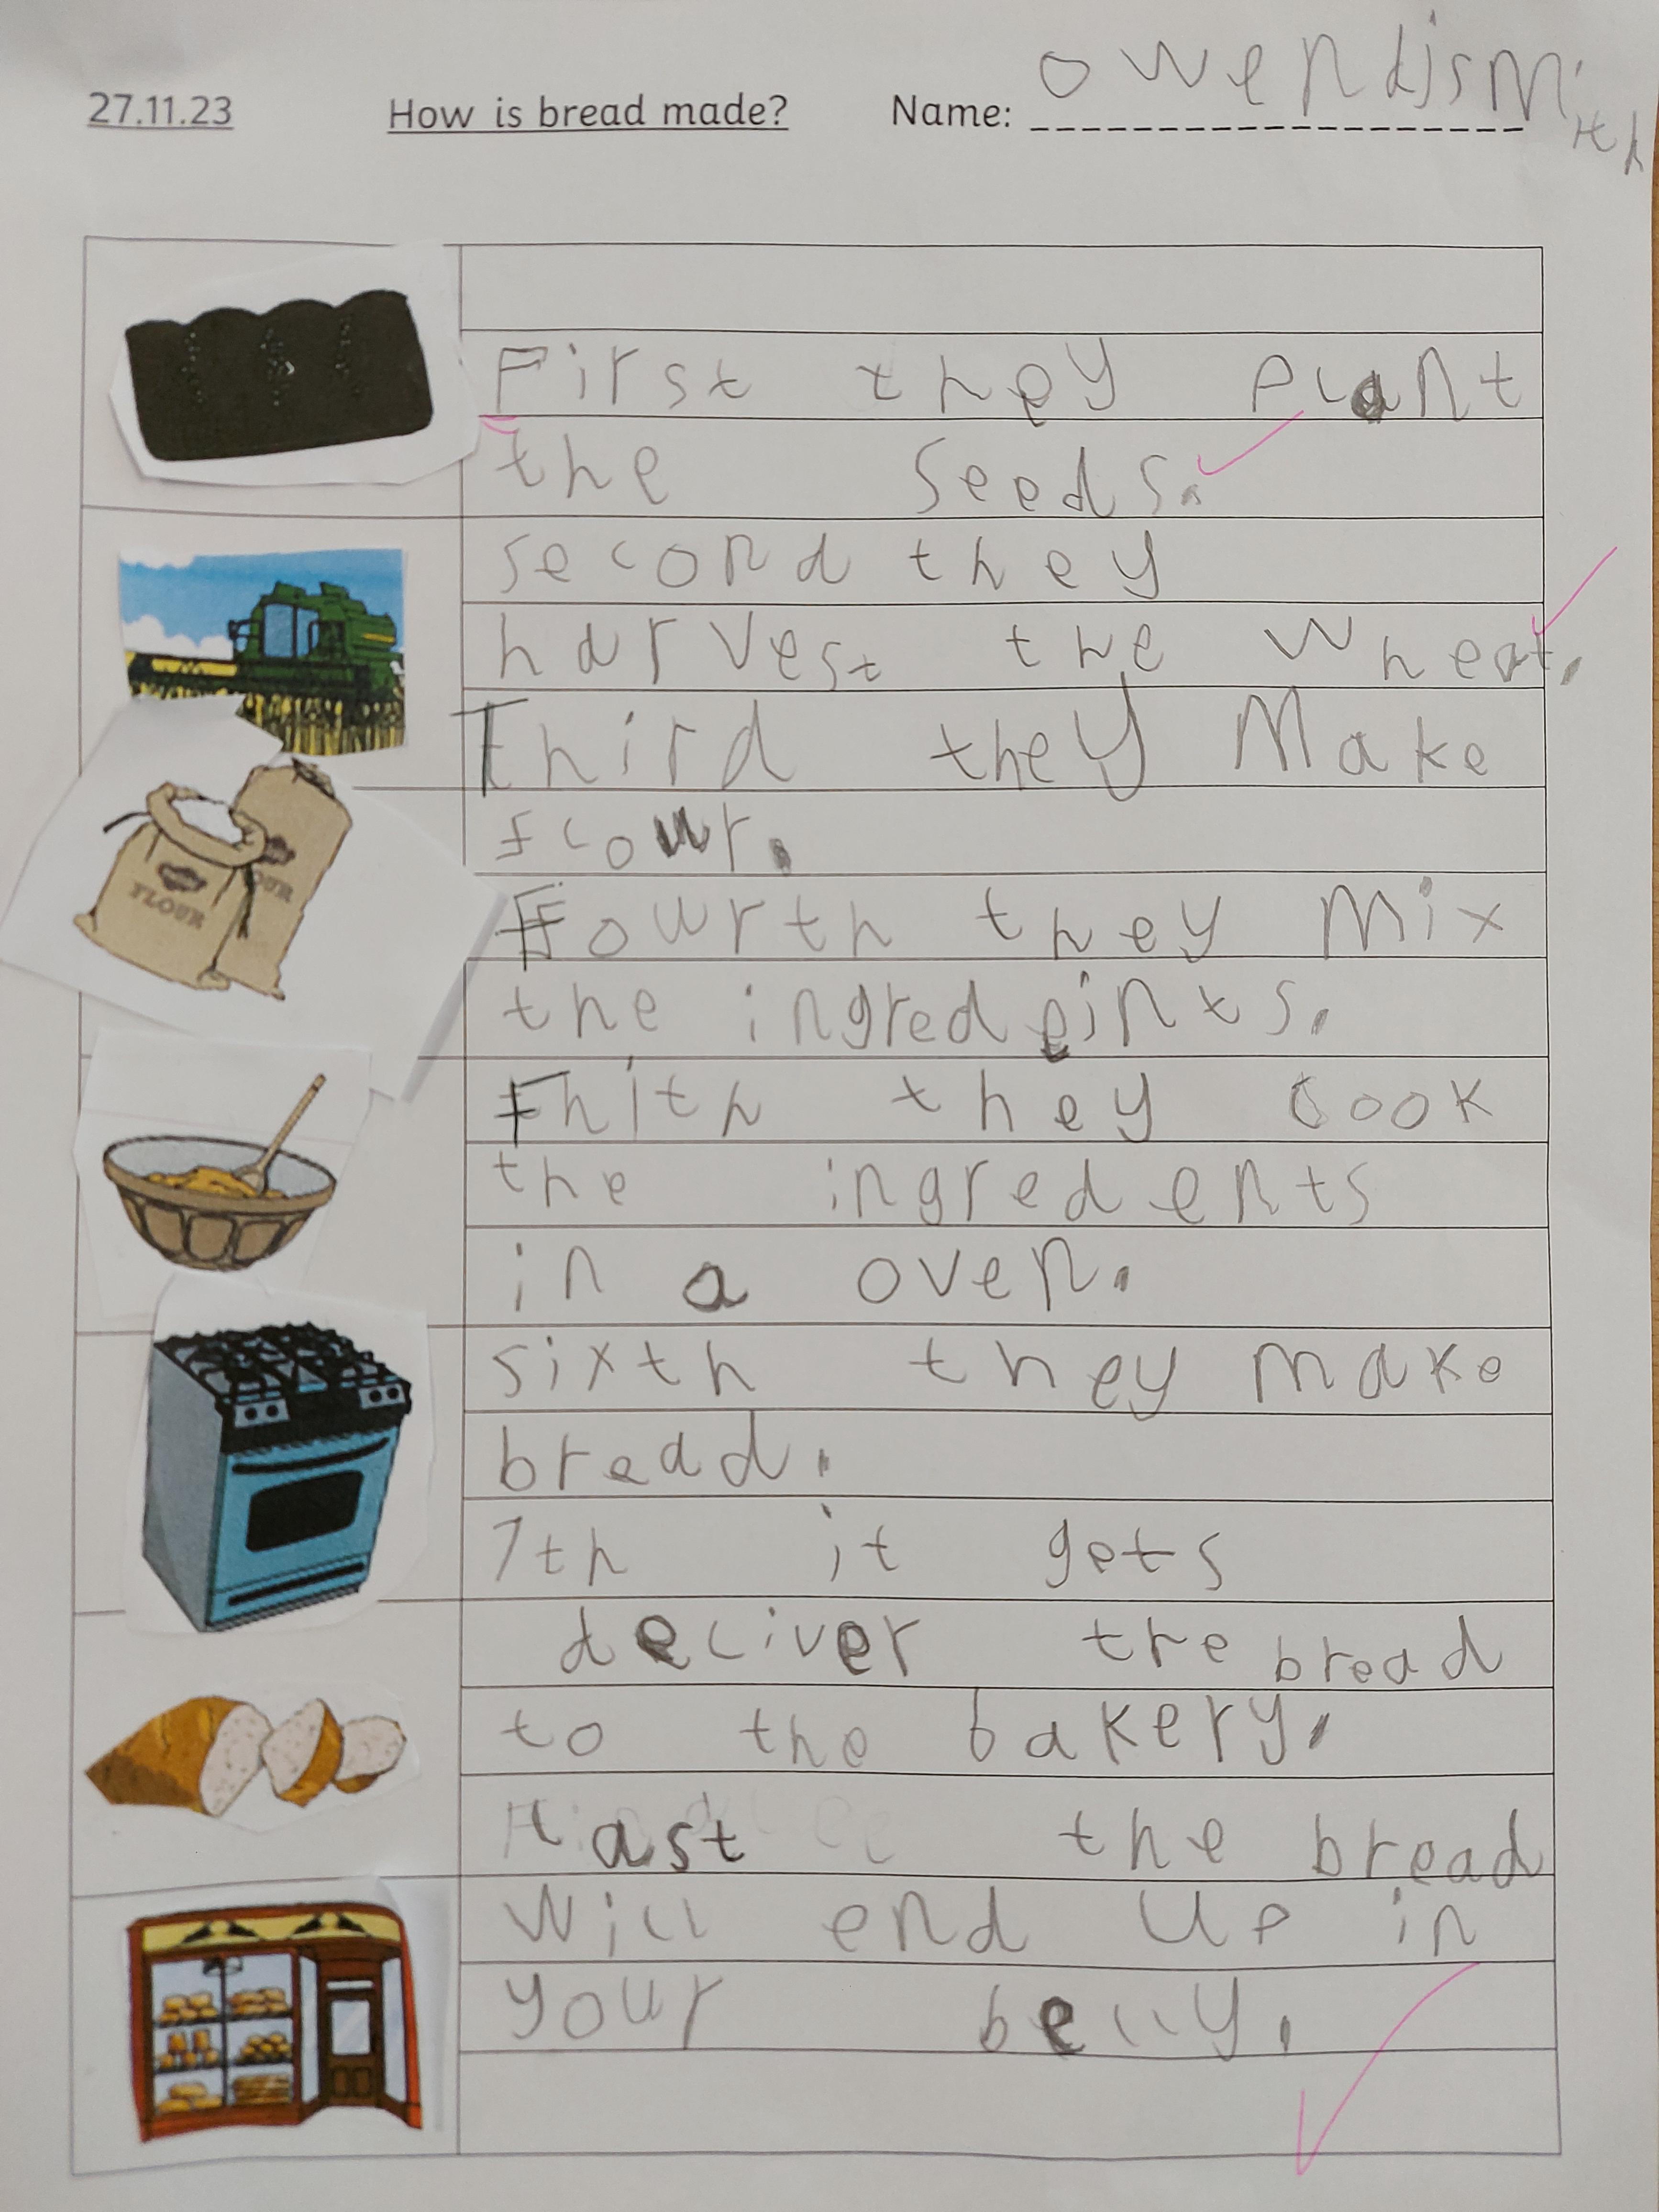 27.11.23 How is bread made? Name: owendjsmith
First they plant
the seeds.
second they
harvest the wheat.
Third they Make
flour.
FLOUR OUR
Fourth they mix
the ingredeints.
Fhith they cook
the ingredents
in a oven.
sixth they make
bread.
7th it gets
deliver tre bread
to the bakery.
Last the bread
will end up in
your belly.